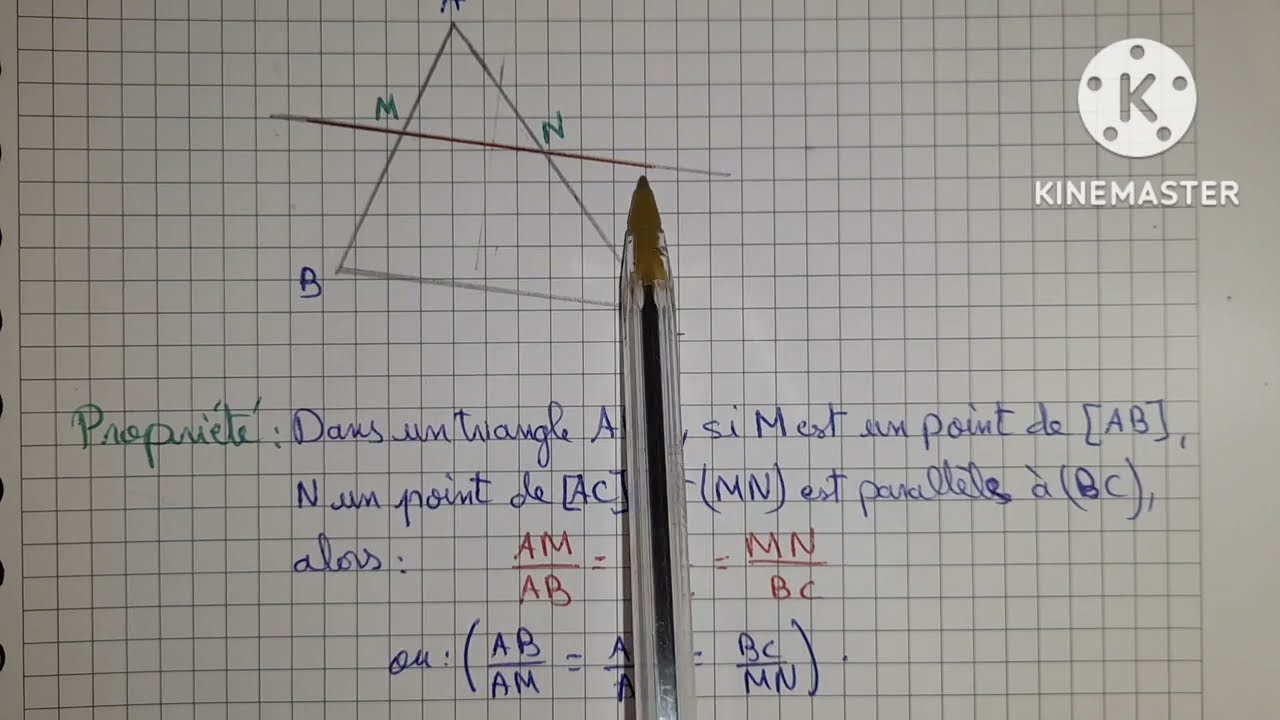 A
M
N
B
KINEMASTER
Propriété: Dans un triangle A , si M est un point de [AB],
N un point de [AC] (MN) est parallèle à (BC),
alors: AM/AB = = MN/BC
ou: (AB/AM = A/A = BC/MN).